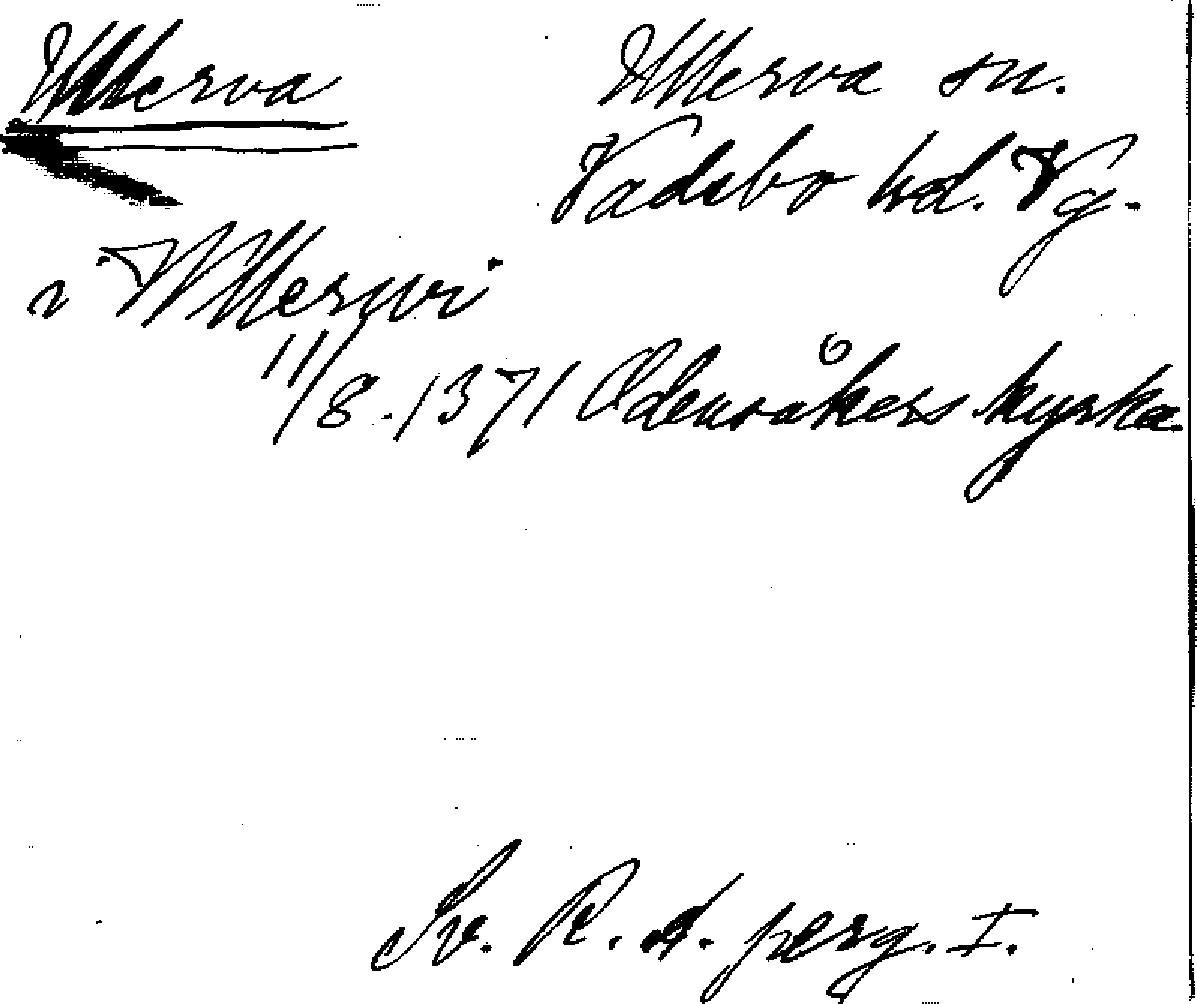 Ullerva Ullerva sn.
Vadsbo hd. Vg.
i Wllerwi
11/8.1371 Odensåkers kyrka
Sv. R. A. perg. I.